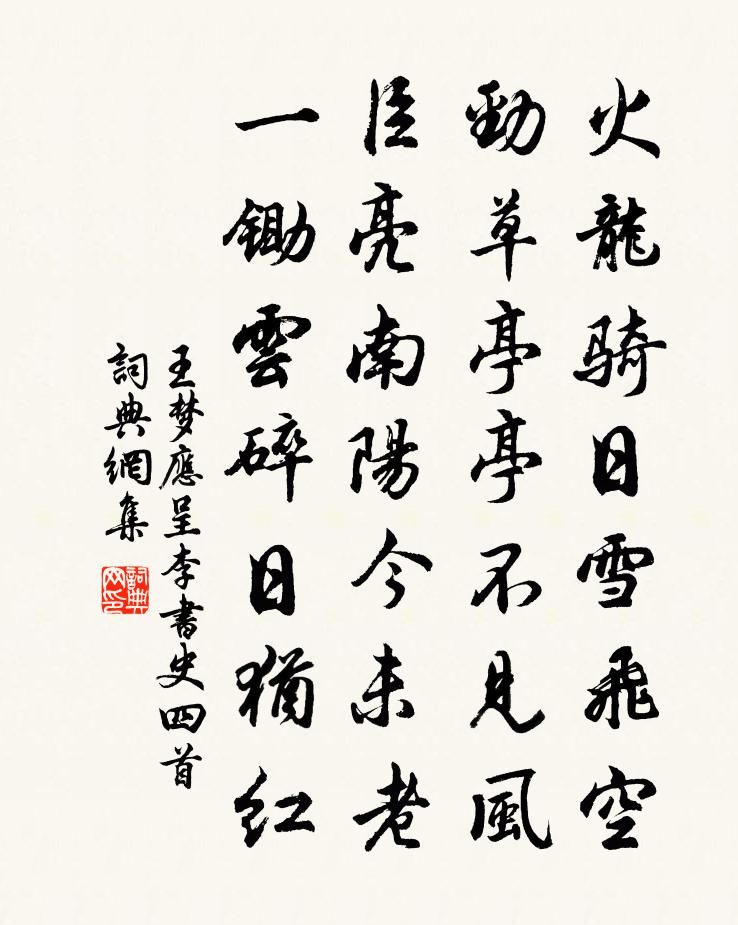 火龍骑日雪飛空
勁草亭亭不見風
臣亮南陽今未老
一鋤雲碎日猶红
王梦應呈李書史四首
詞典網集
詞典網印